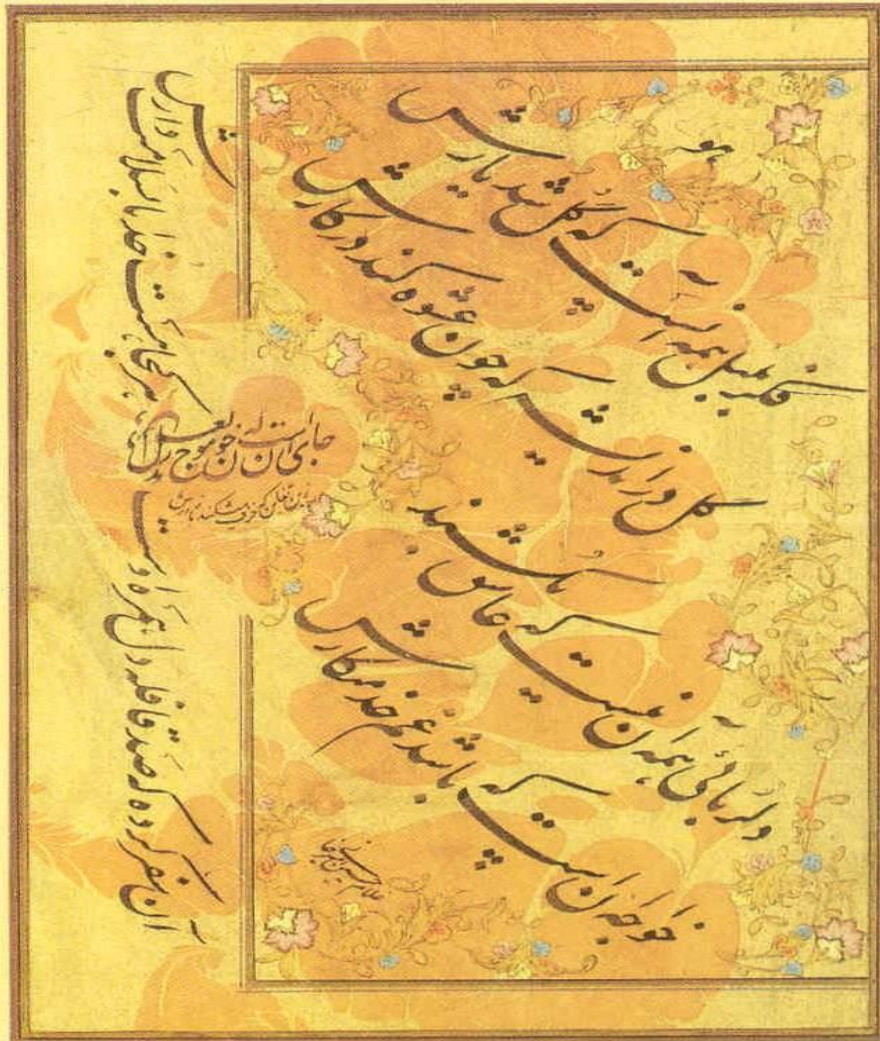 هو
فکر بلبل همه آنست که گل شد یارش
گل در اندیشه که چون عشوه کند در کارش
دلربائی همه آن نیست که عاشق بکشند
خواجه آنست که باشد غم خدمتکارش
جای آن است که خون موج زند در دل لعل
زین تغابن که خزف میشکند بازارش
آن سفر کرده که صد قافله دل همره اوست
هر کجا هست خدایا بسلامت دارش